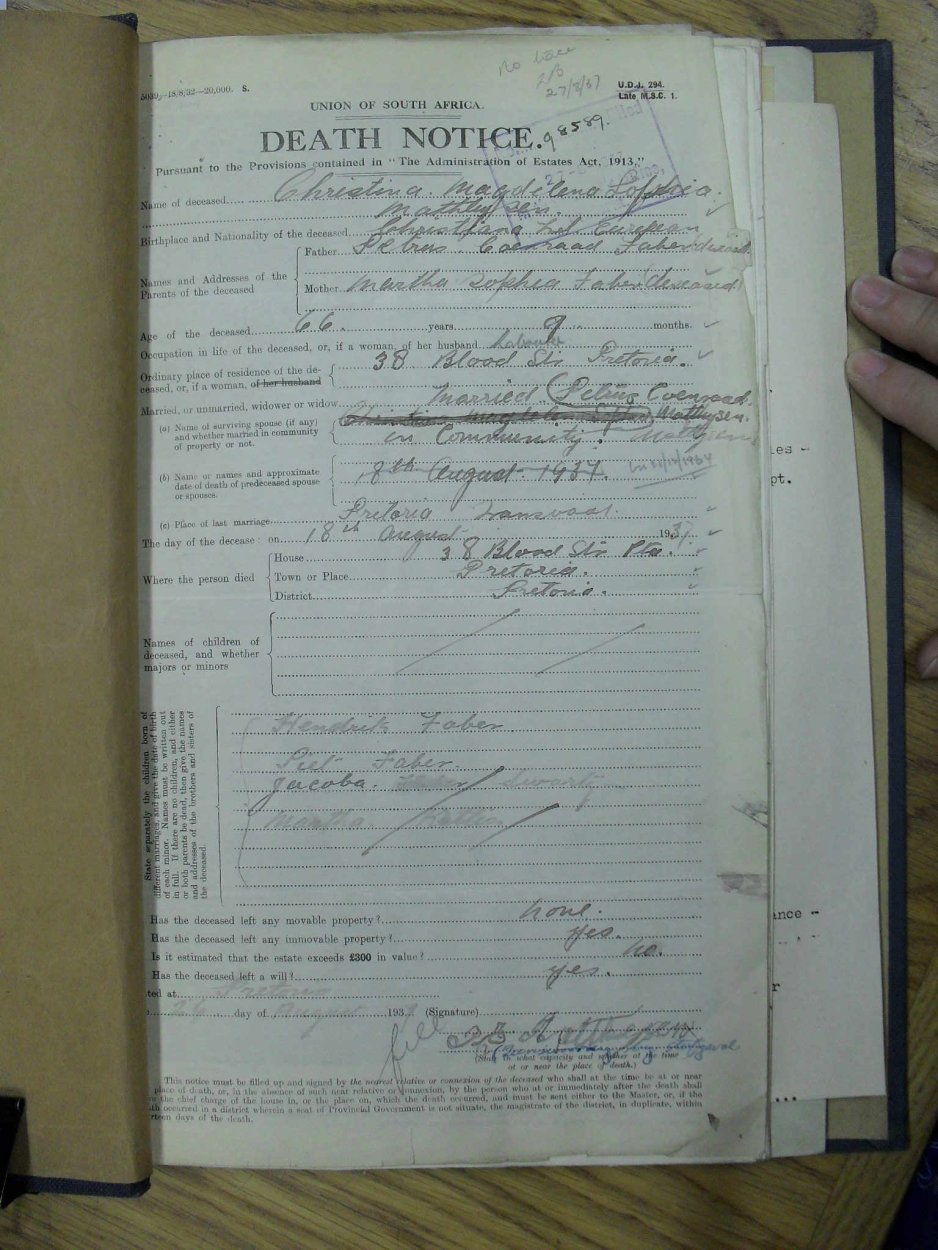 No trace
27/8/37
5039—18/8/32—20,000. S.
U.D.J. 294.
Late M.S.C. 1.
UNION OF SOUTH AFRICA.
DEATH NOTICE.
98589.
Pursuant to the Provisions contained in "The Administration of Estates Act, 1913,"
Name of deceased Christina Magdelena Sophia
Birthplace and Nationality of the deceased Christiana European
Names and Addresses of the Parents of the deceased
Father Petrus Coenraad Faber deceased
Mother Martha Sophia Faber deceased
Age of the deceased 66 years 9 months.
Occupation in life of the deceased, or, if a woman, of her husband
Ordinary place of residence of the deceased, or, if a woman, of her husband
38 Blood Str Pretoria.
Married, or unmarried, widower or widow Married Petrus Coenraad
(a) Name of surviving spouse (if any) and whether married in community of property or not.
Matthysen.
in Community.
(b) Name or names and approximate date of death of predeceased spouse or spouses.
18th August 1937.
(c) Place of last marriage Pretoria Transvaal.
The day of the decease: on 18th August 1937
Where the person died
House 38 Blood Str Pta.
Town or Place Pretoria.
District Pretoria.
Names of children of deceased, and whether majors or minors
State separately the children born of different marriages, and give the date of birth of each minor. Names must be written out in full. If there are no children, and either or both parents be dead, then give the names and addresses of the brothers and sisters of the deceased.
Hendrik Faber
Piet Faber
Jacoba Swartz
Martha
Has the deceased left any movable property? none.
Has the deceased left any immovable property? yes.
Is it estimated that the estate exceeds £300 in value? no.
Has the deceased left a will? yes.
ted at Pretoria
26 day of August 1937 (Signature)
(State in what capacity and whether at the time at or near the place of death.)
This notice must be filled up and signed by the nearest relative or connexion of the deceased who shall at the time be at or near
place of death, or, in the absence of such near relative or connexion, by the person who at or immediately after the death shall
the chief charge of the house in, or the place on, which the death occurred, and must be sent either to the Master, or, if the
th occurred in a district wherein a seat of Provincial Government is not situate, the magistrate of the district, in duplicate, within
rteen days of the death.